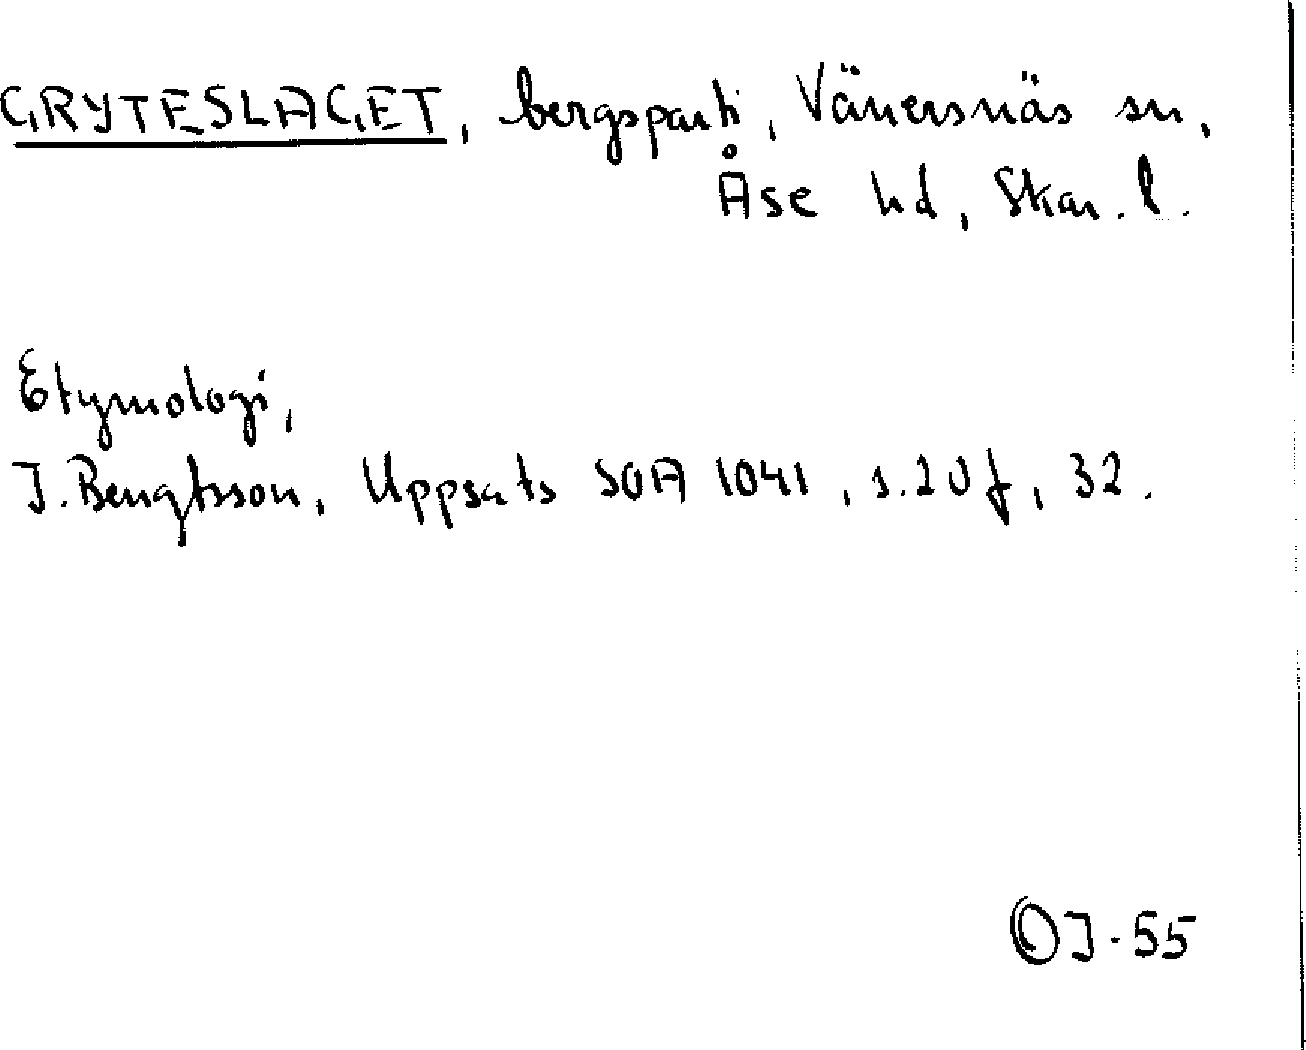 GRYTESLAGET, bergsparti, Vänersnäs sn,
Åse hd, Skar. l.
Etymologi,
J. Bengtsson, Uppsats SOA 1041, s. 20 f, 32.
OJ-55